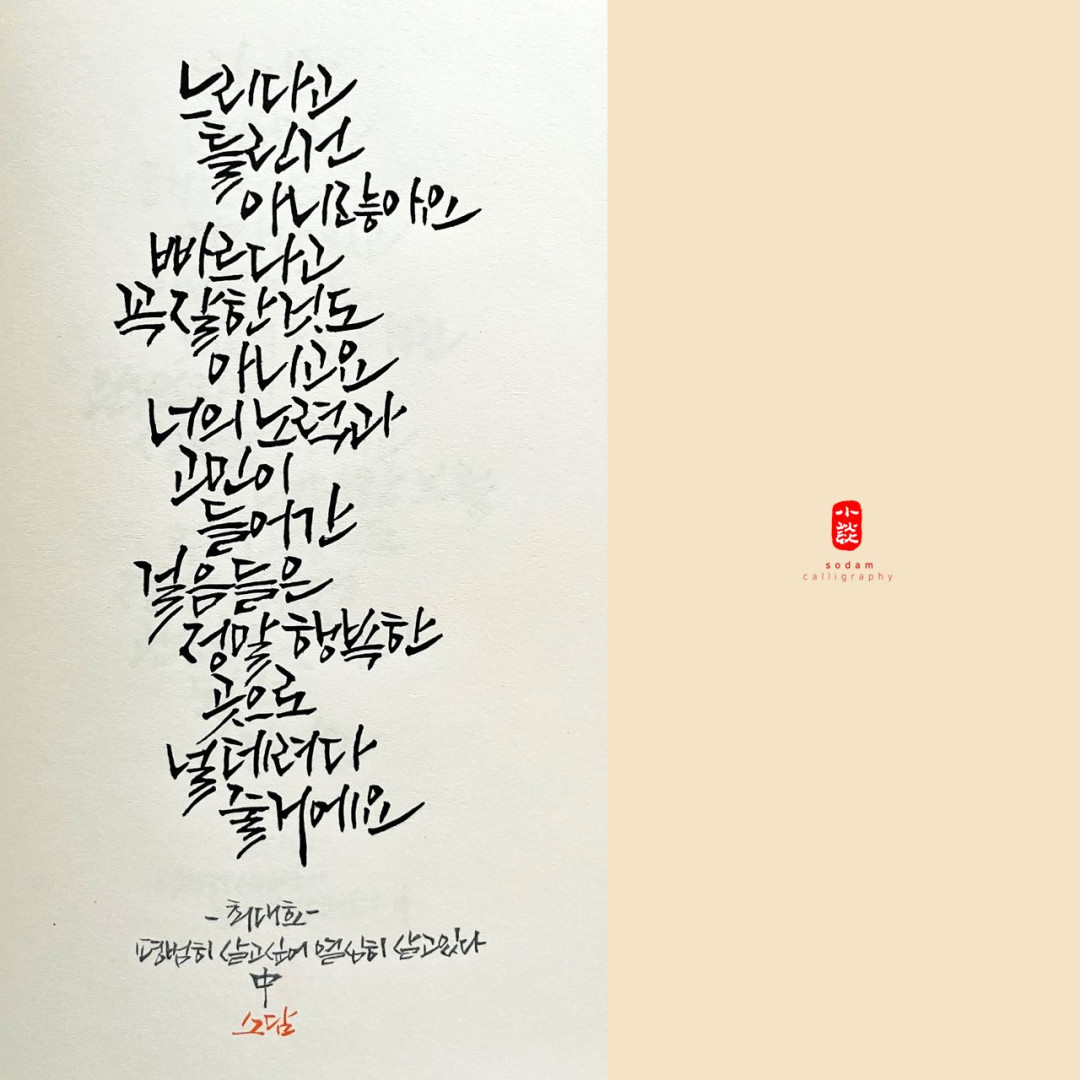 느리다고
틀린건
아니랂아요
빠르다고
꼭 잘한 것도
아니고요
너의 노력과
고민이
들어간
걸음들은
정말 행복한
곳으로
널 데려다
줄거에요
- 최대호 -
평범히 살고싶어 열심히 살고있다
中
소담
小談
sodam
calligraphy